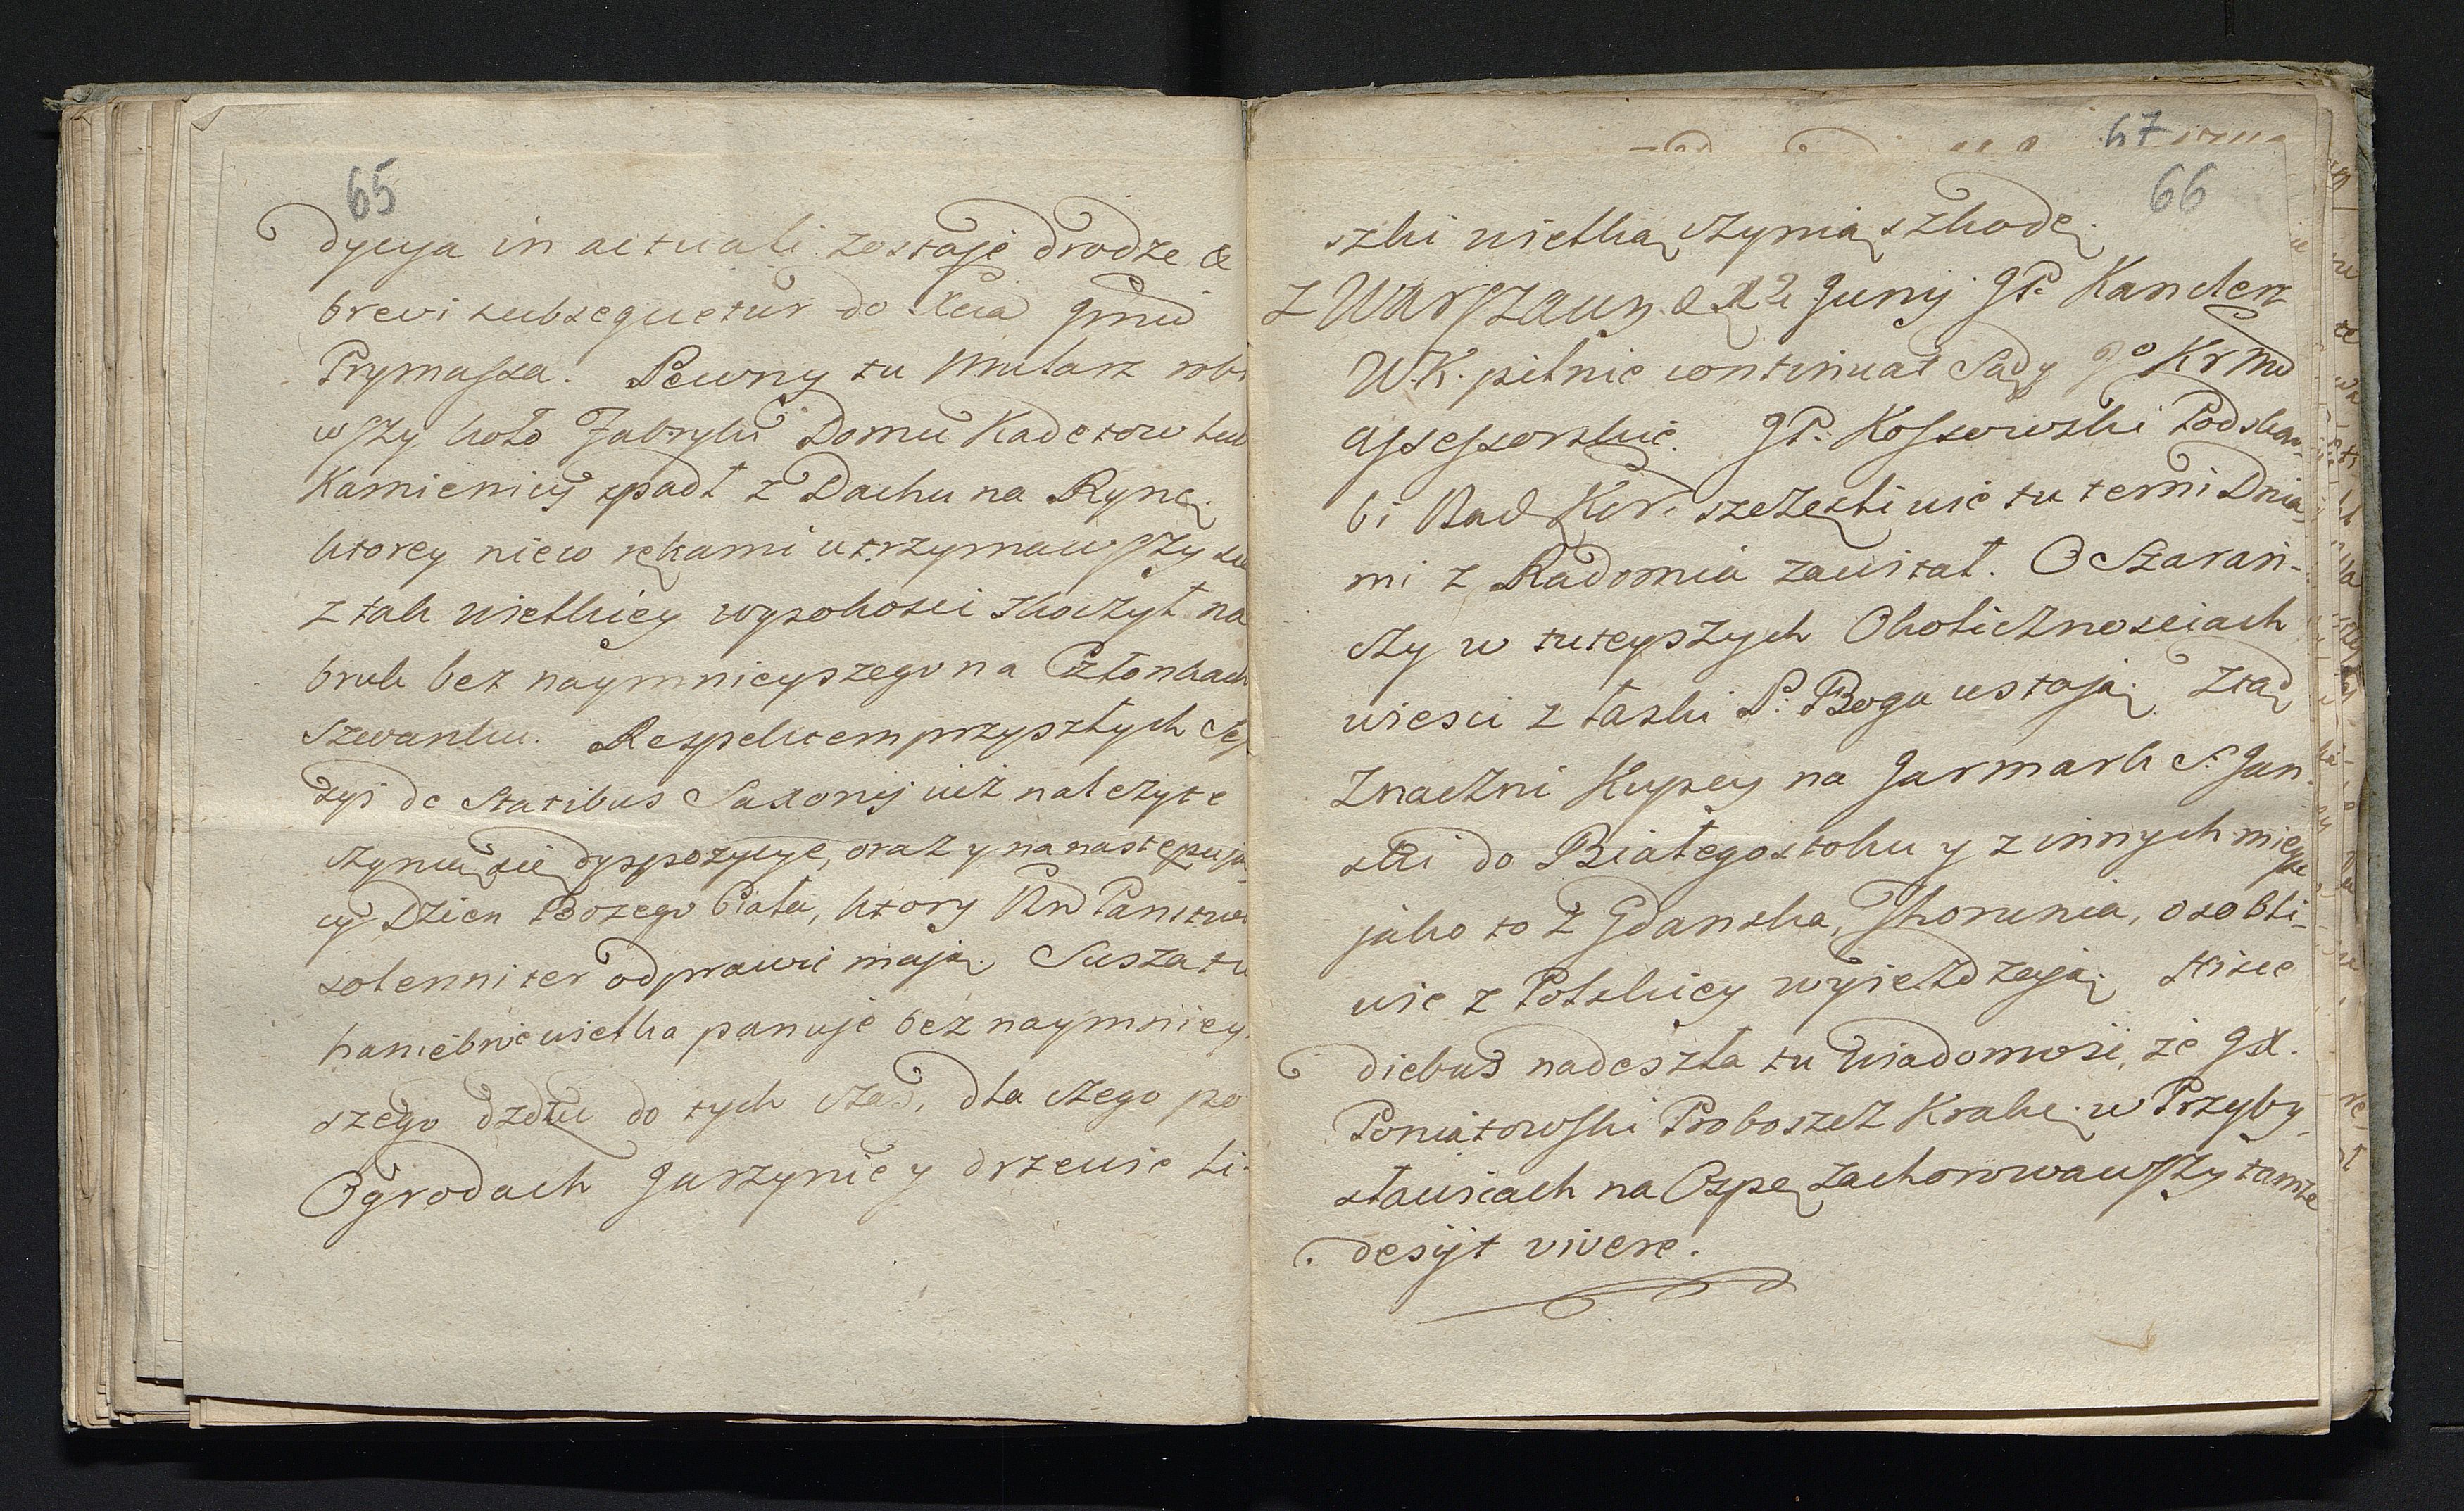 65
dycya in actuali zostaje drodze &
brevi subsequetur do Xcia Jmci
Prymassa. Pewny tu Mularz robi
wszy koło Fabryki Domu Kadetow
Kamienicy spadł z Dachu na Rynę
ktorey niew rękami utrzymawszy
z tak wielkiey wysokosci skoczył na
bruk bez naymnieyszego na Członkach
szwanku. Respektem przyszłych
de Statibus Saxonij iuż należyte
czynią się dyspozycye, oraz y na następują
cy Dzien Bożego Ciała, ktory Panstwo
solenniter odprawić mają. Susza tu
haniebnie wielka panuje bez naymniey
szego dżdżu do tych czas, dla czego po
Ogrodach Jarzynie y drzewie li
67
66
szki wielką czynią szkodę.
z Warszawy d. 12 Junij JP. Kanclerz
W.K. pilnie continuał Sądy JoKrMci
assessorskie. JP. Kossowski Podskar-
bi Nad Kor. szczęśliwie tu temi Dnia-
mi z Radomia zawitał. O Szarań-
czy w tuteyszych Okolicznosciach
wiesci z łaski P. Boga ustają. Ztąd
znaczni Kupcy na Jarmark S. Jan-
ski do Białegostoku y z innych mieysc
jako to z Gdanska, Thorunia, osobli-
wie z Polskiey wyjeżdzają. Hisce
diebus nadeszła tu Wiadomość, że JX.
Poniatowski Proboszcz Krako. w Przyby-
sławicach na Ospę zachorowawszy tamże
desijt vivere.